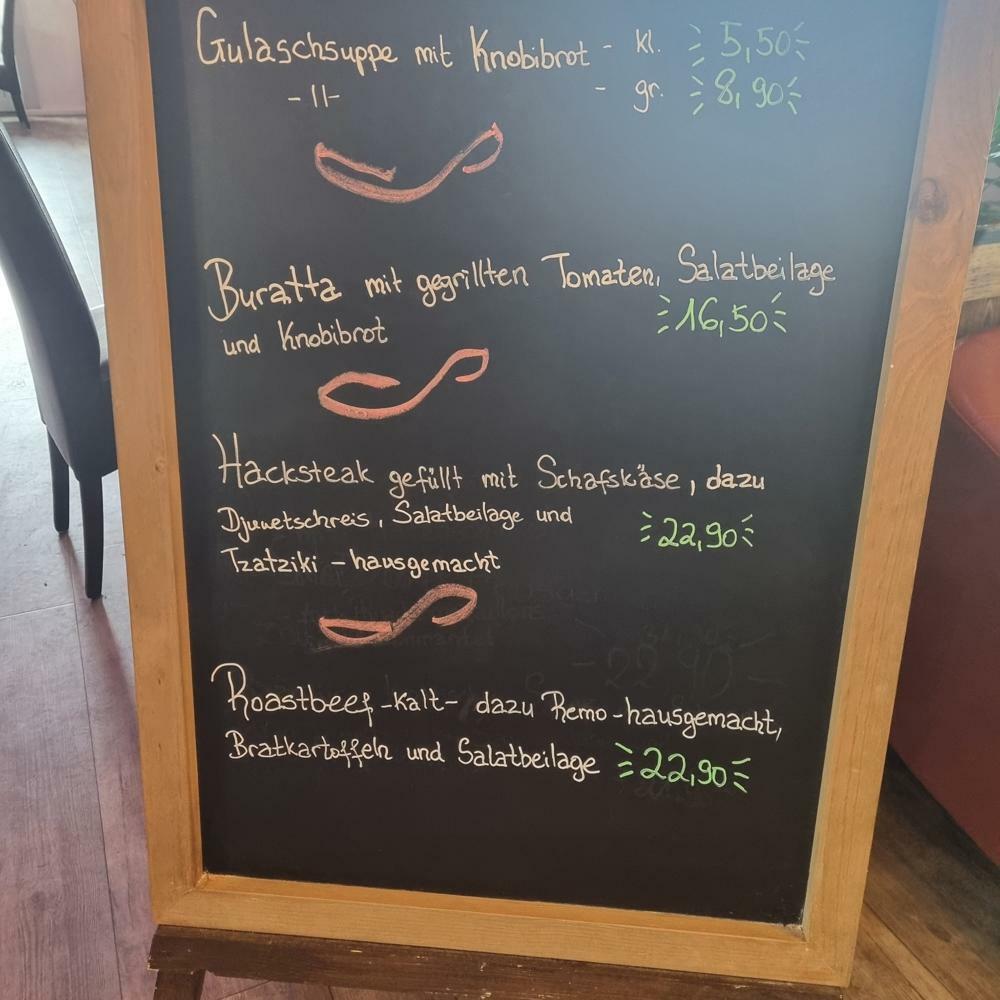 Gulaschsuppe mit Knobibrot - kl. 5,50
- 11 - - gr. 8,90
Buratta mit gegrillten Tomaten, Salatbeilage
und Knobibrot 16,50
Hacksteak gefüllt mit Schafskäse, dazu
Djuvetschreis, Salatbeilage und 22,90
Tzatziki - hausgemacht
Roastbeef -kalt- dazu Remo -hausgemacht,
Bratkartoffeln und Salatbeilage 22,90